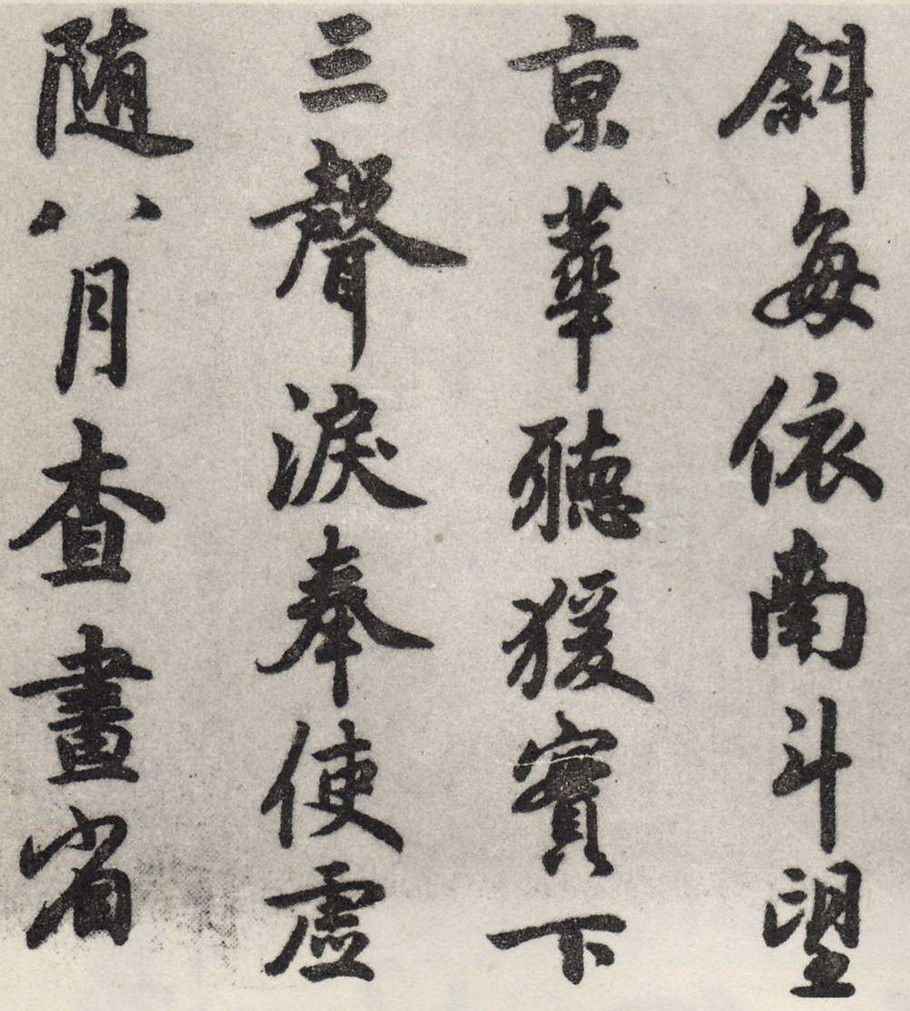 斜每依南斗望
京華聽猨實下
三聲淚奉使虛
随八月查畫省